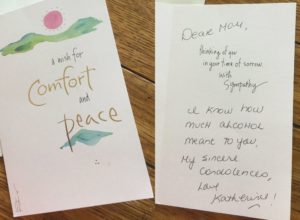 a wish for
Comfort
and
peace
Dear Mom,
thinking of you
in your time of sorrow
with
Sympathy
I know how
much alcohol
meant to you.
My sincere
condolences,
Love
Katherine!